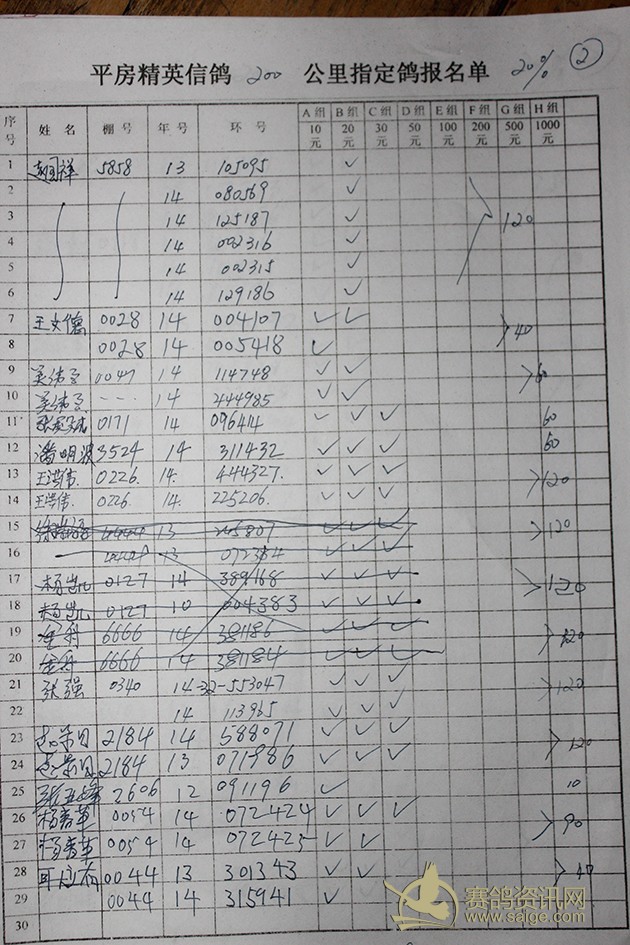 平房精英信鸽 200 公里指定鸽报名单 20% ②
序号 姓名 棚号 年号 环号 A组10元 B组20元 C组30元 D组50元 E组100元 F组200元 G组500元 H组1000元
1 5858 13 105095 ✓
2 14 080569 ✓
3 14 125187 ✓ 120
4 14 002316 ✓
5 14 002315 ✓
6 14 129186 ✓
7 0028 14 004107 ✓ ✓
8 0028 14 005418 ✓ 40
9 0047 14 114748 ✓ ✓ 60
10 14 244985 ✓ ✓
11 0171 14 096414 ✓ ✓ ✓ 60
12 潘明波 3524 14 311432 ✓ ✓ ✓ 60
13 王洪伟 0226. 14. 444327. ✓ ✓ ✓ 120
14 王洪伟. 0226. 14. 225206. ✓ ✓ ✓
15 13 ✓ ✓ 120
16 13 ✓ ✓ ✓
17 0127 14 389168 ✓ ✓ ✓ 120
18 0127 10 004383 ✓ ✓ ✓
19 6666 14 381186 ✓ ✓ ✓ 120
20 6666 14 381184 ✓ ✓ ✓
21 张强 0340 14-32-553047 ✓ ✓ ✓ 120
22 14 113965 ✓ ✓ ✓
23 2184 14 588071 ✓ ✓ ✓ 120
24 2184 13 071986 ✓ ✓ ✓
25 2606 12 091196 ✓ 10
26 0054 14 072424 ✓ ✓ ✓ 90
27 0054 14 072425 ✓ ✓
28 0044 13 301343 ✓ ✓ 40
29 0044 14 315941 ✓
30
赛鸽资讯网
www.saige.com